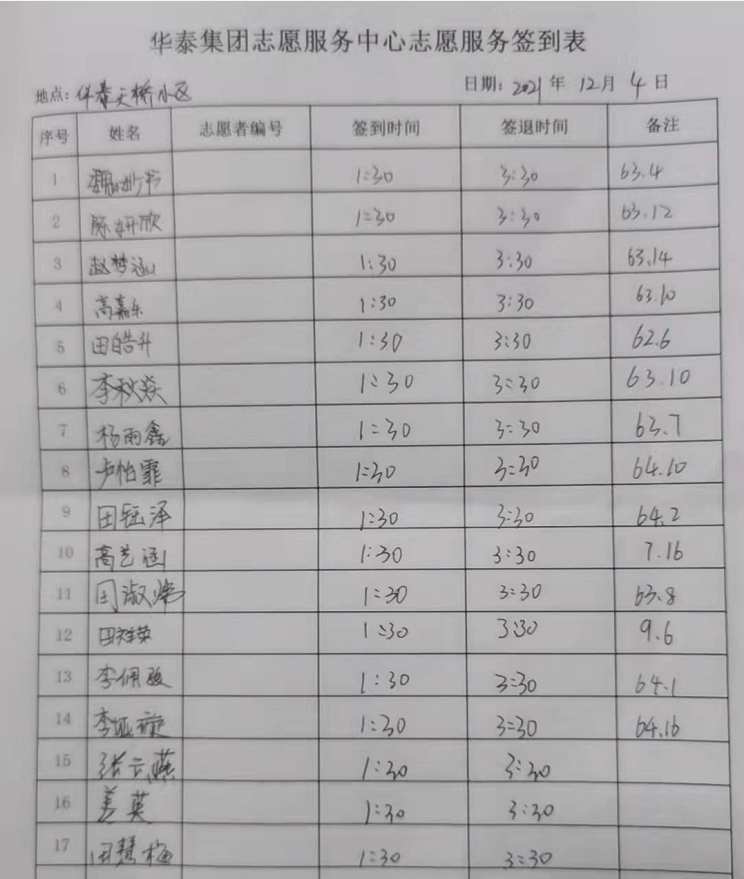 华泰集团志愿服务中心志愿服务签到表
地点：华泰天桥小区 日期：2021年 12月 4日
序号 姓名 志愿者编号 签到时间 签退时间 备注
1 1:30 3:30 63.4
2 陈妍欣 1:30 3:30 63.12
3 赵梦涵 1:30 3:30 63.14
4 高嘉乐 1:30 3:30 63.10
5 田皓升 1:30 3:30 62.6
6 李秋燚 1:30 3:30 63.10
7 杨雨鑫 1:30 3:30 63.7
8 卢怡霏 1:30 3:30 64.10
9 田钰泽 1:30 3:30 64.2
10 高艺涵 1:30 3:30 7.16
11 田淑 1:30 3:30 63.8
12 田祥荣 1:30 3:30 9.6
13 李佩 1:30 3:30 64.1
14 李垭璇 1:30 3:30 64.16
15 张云燕 1:30 3:30
16 姜英 1:30 3:30
17 田慧梅 1:30 3:30